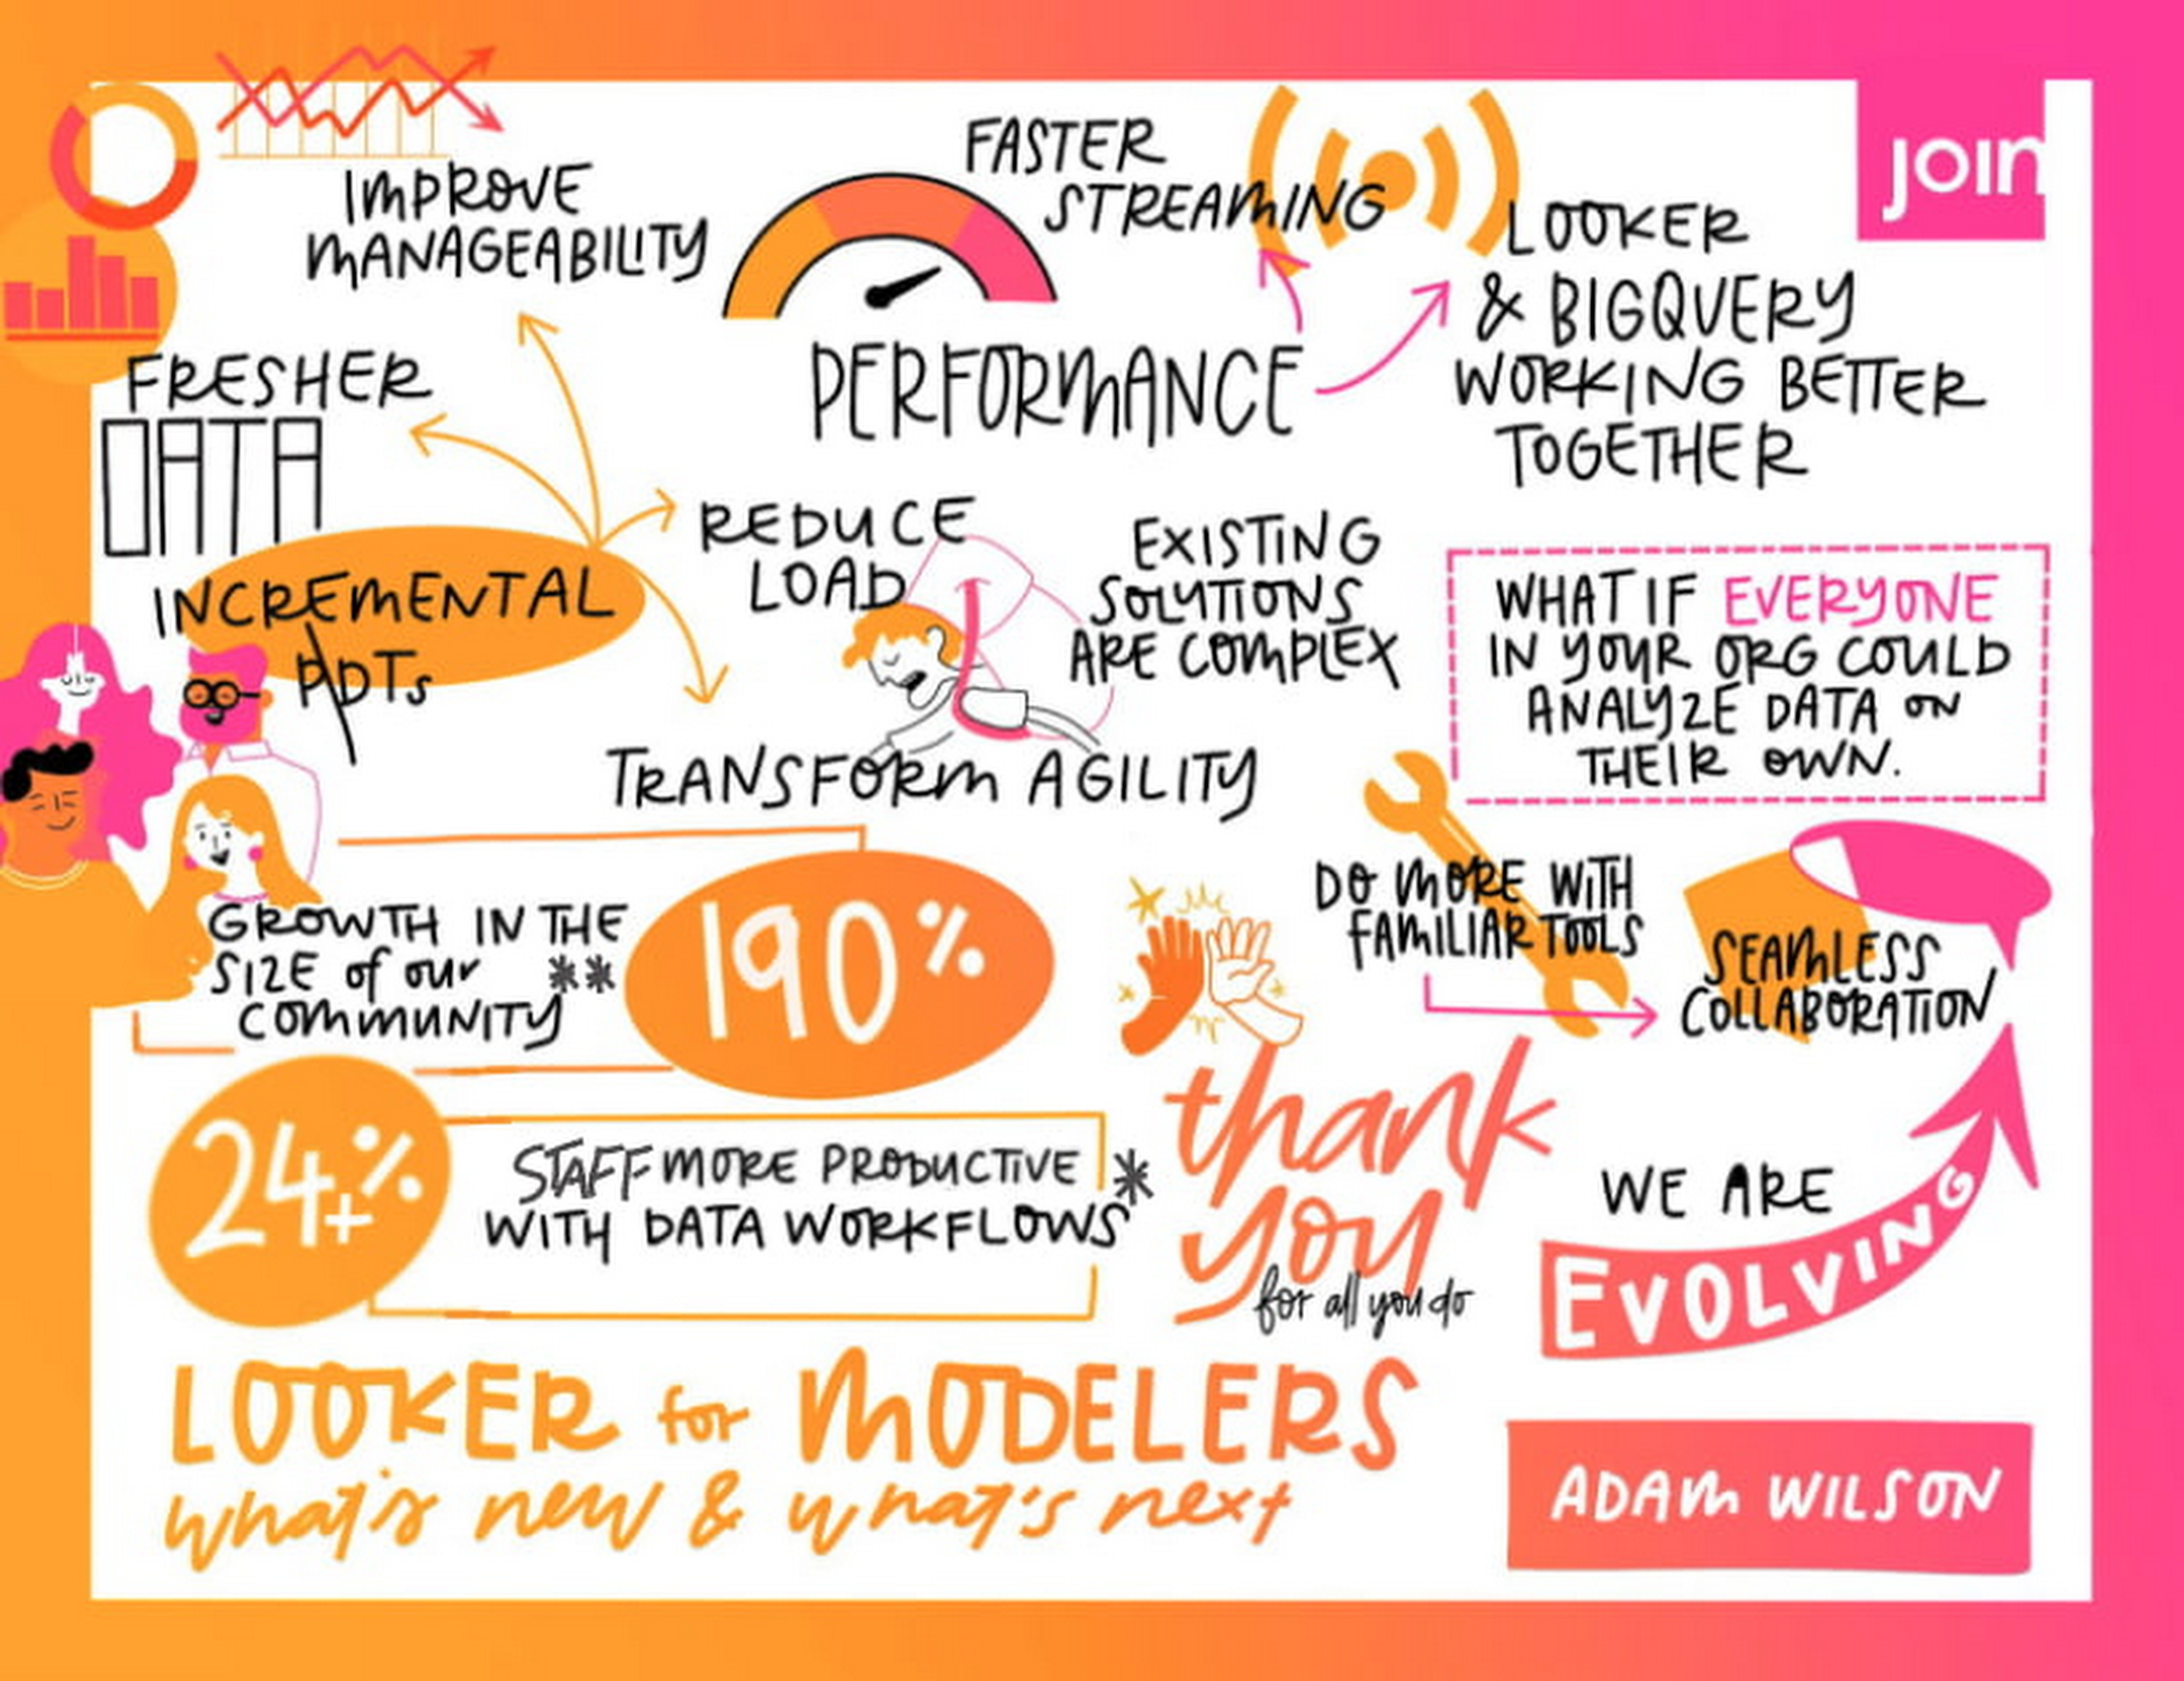 join
IMPROVE
MANAGEABILITY
FASTER
STREAMING
LOOKER
& BIGQUERY
WORKING BETTER
TOGETHER
PERFORMANCE
FRESHER
DATA
INCREMENTAL
PDTs
REDUCE
LOAD
TRANSFORM AGILITY
EXISTING
SOLUTIONS
ARE COMPLEX
WHAT IF EVERYONE
IN YOUR ORG COULD
ANALYZE DATA ON
THEIR OWN.
GROWTH IN THE
SIZE of our **
COMMUNITY
190%
DO MORE WITH
FAMILIAR TOOLS
SEAMLESS
COLLABORATION
24+%
STAFF MORE PRODUCTIVE *
WITH DATA WORKFLOWS
thank
you
for all you do
WE ARE
EVOLVING
LOOKER for MODELERS
what's new & what's next
ADAM WILSON